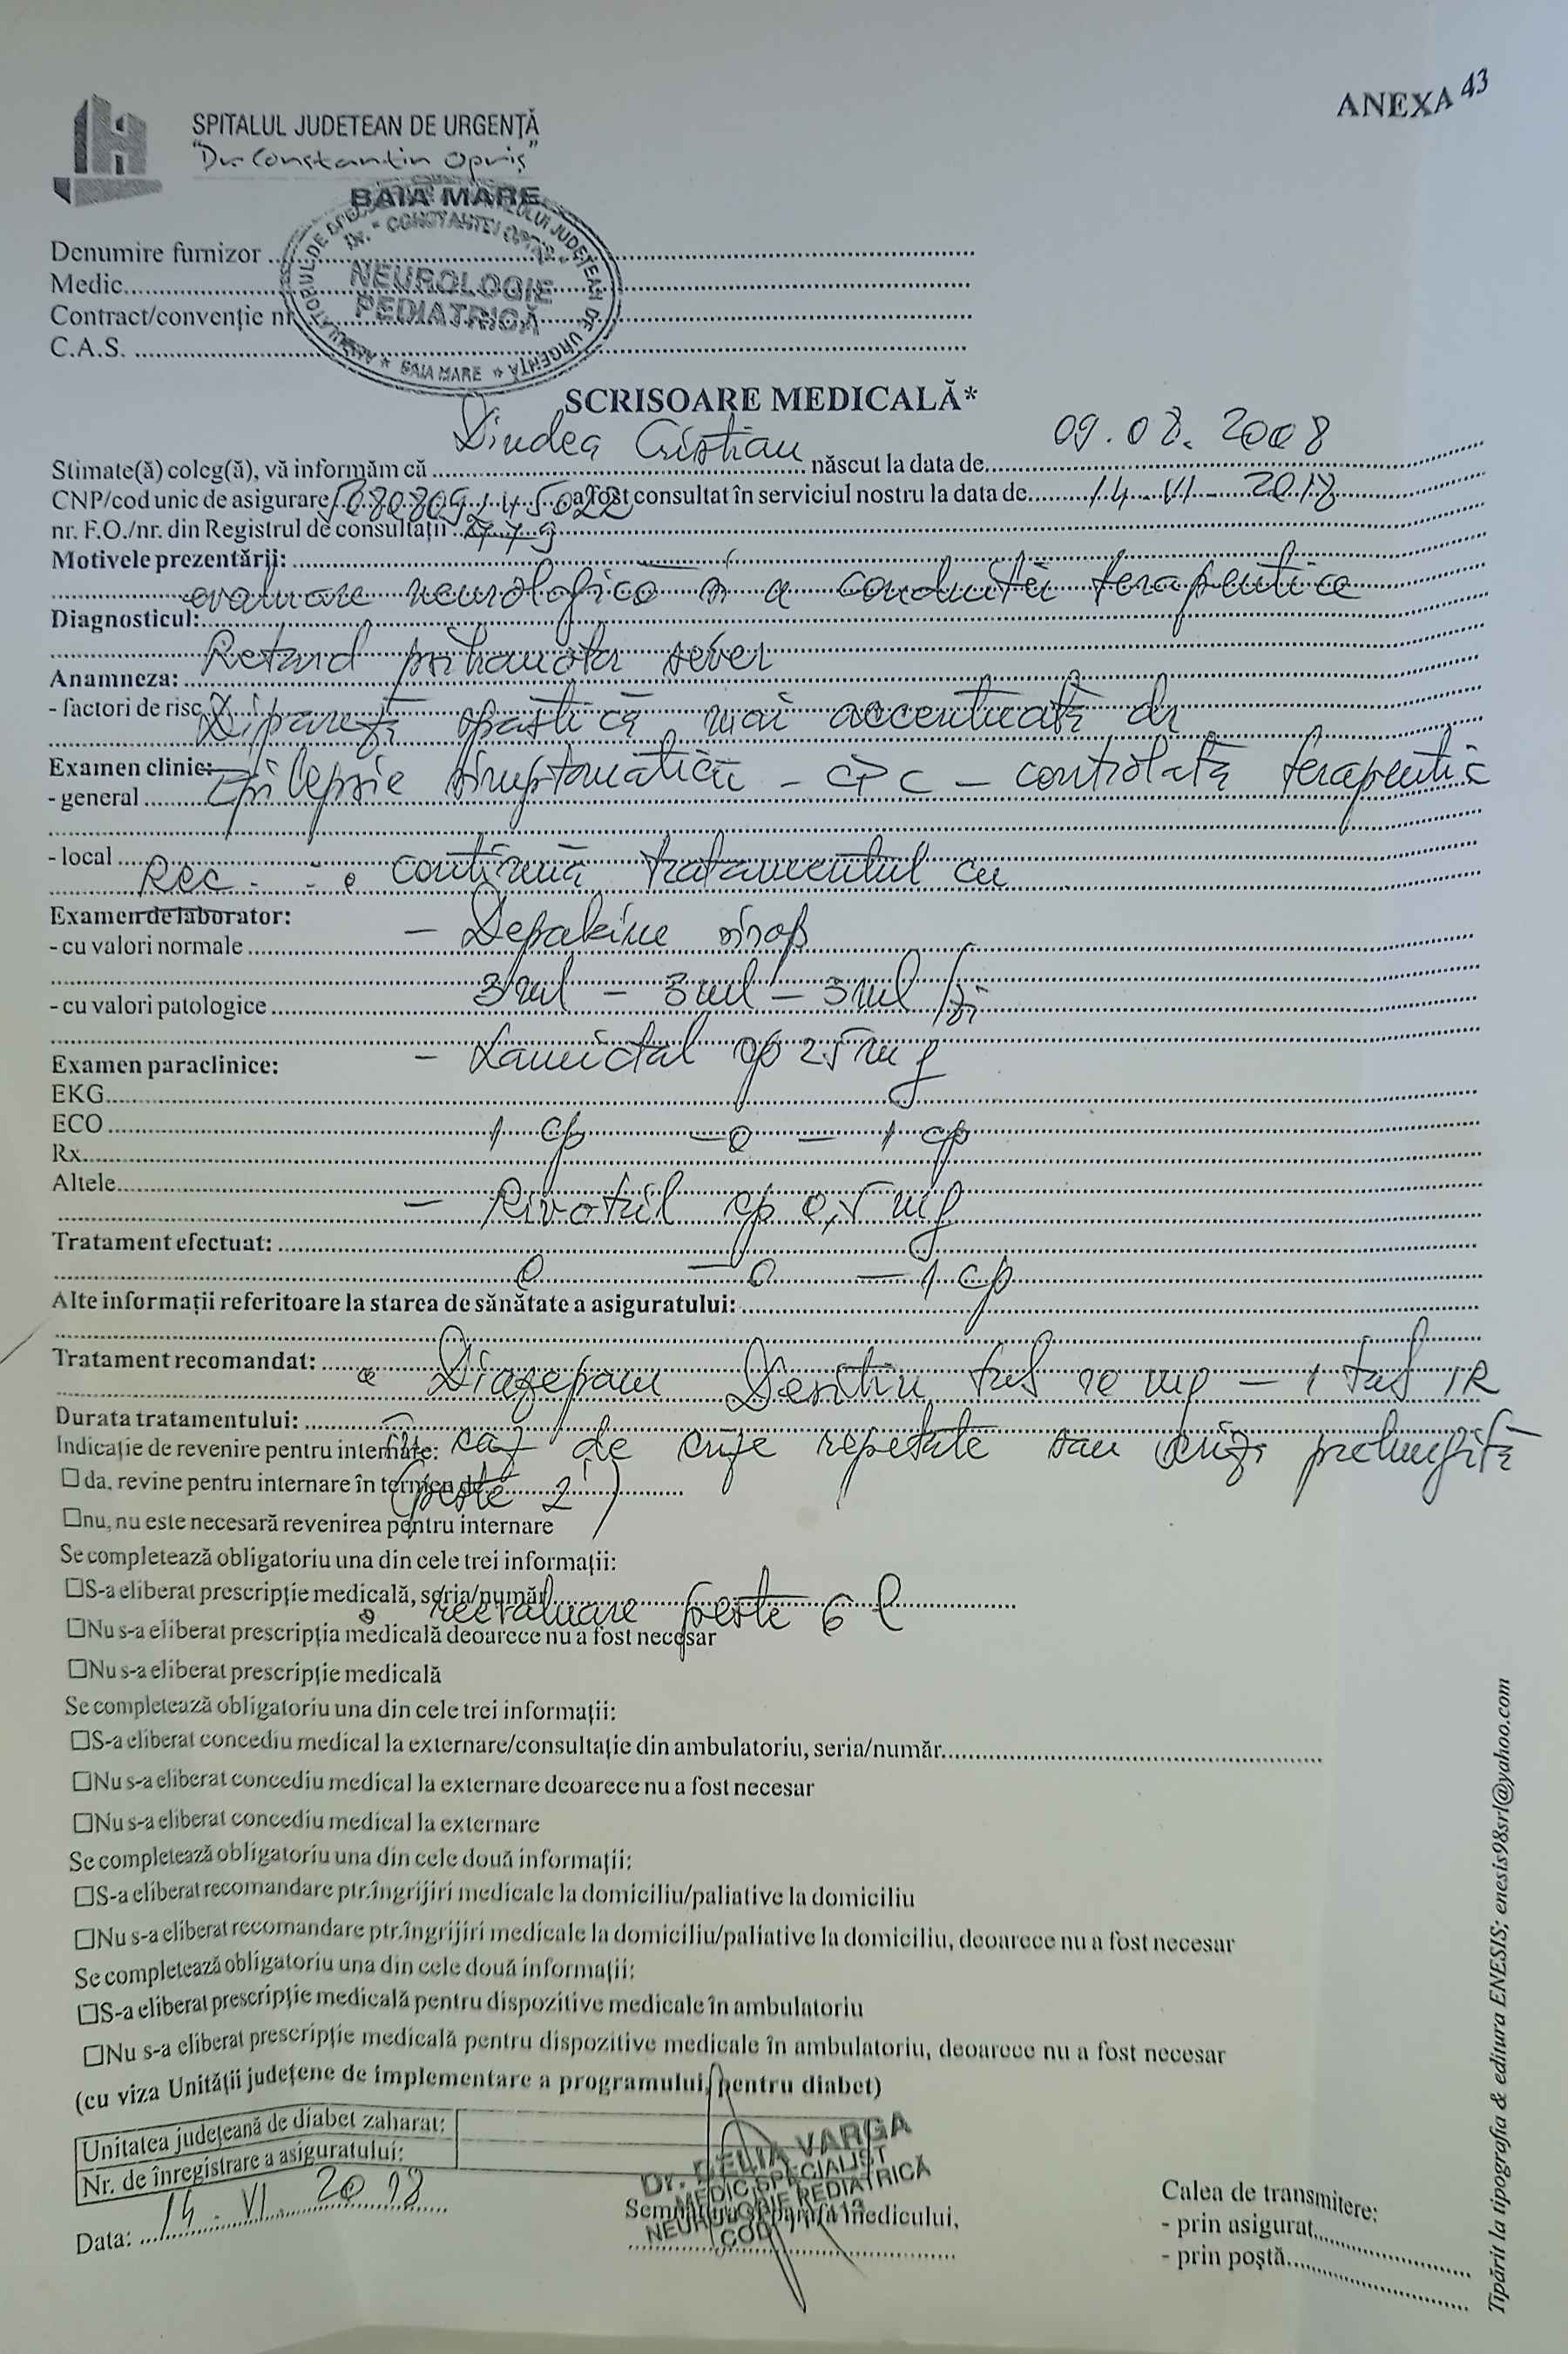 ANEXA 43
SPITALUL JUDETEAN DE URGENȚĂ
"Dr. Constantin Opriș"
BAIA MARE
NEUROLOGIE
PEDIATRICĂ
BAIA MARE
Denumire furnizor
Medic
Contract/convenție nr
C.A.S.
SCRISOARE MEDICALĂ*
Stimate(ă) coleg(ă), vă informăm că Dindea Cristian născut la data de 09.08.2008
CNP/cod unic de asigurare a fost consultat în serviciul nostru la data de 14.VI.2018
nr. F.O./nr. din Registrul de consultații
Motivele prezentării:
evaluare neurologică și a conduitei terapeutice
Diagnosticul:
Retard psihomotor sever
Anamneza:
- factori de risc
Dipareză spastică mai accentuată dr
Examen clinic:
- general
Epilepsie simptomatică - CPC - controlată terapeutic
- local
Rec. : • continuă tratamentul cu
Examen de laborator:
- Depakine sirop
- cu valori normale
3 ml - 3 ml - 3 ml /zi
- cu valori patologice
- Lamictal cp 25 mg
Examen paraclinice:
EKG
ECO
1 cp - 0 - 1 cp
Rx
Altele
- Rivotril cp 0,5 mg
Tratament efectuat:
0 - 0 - 1 cp
Alte informații referitoare la starea de sănătate a asiguratului:
Tratament recomandat:
• Diazepam Desitin tub 10 mg - 1 tub IR
Durata tratamentului:
în caz de crize repetate sau criză prelungită
Indicație de revenire pentru internare:
☐ da, revine pentru internare în termen de
(peste 2')
☐nu, nu este necesară revenirea pentru internare
Se completează obligatoriu una din cele trei informații:
☐S-a eliberat prescripție medicală, seria/număr
• reevaluare peste 6 l
☐Nu s-a eliberat prescripția medicală deoarece nu a fost necesar
☐Nu s-a eliberat prescripție medicală
Se completează obligatoriu una din cele trei informații:
☐S-a eliberat concediu medical la externare/consultație din ambulatoriu, seria/număr
☐Nu s-a eliberat concediu medical la externare deoarece nu a fost necesar
☐Nu s-a eliberat concediu medical la externare
Se completează obligatoriu una din cele două informații:
☐S-a eliberat recomandare ptr.îngrijiri medicale la domiciliu/paliative la domiciliu
☐Nu s-a eliberat recomandare ptr.îngrijiri medicale la domiciliu/paliative la domiciliu, deoarece nu a fost necesar
Se completează obligatoriu una din cele două informații:
☐S-a eliberat prescripție medicală pentru dispozitive medicale în ambulatoriu
☐Nu s-a eliberat prescripție medicală pentru dispozitive medicale în ambulatoriu, deoarece nu a fost necesar
(cu viza Unității județene de implementare a programului, pentru diabet)
Unitatea județeană de diabet zaharat:
Nr. de înregistrare a asiguratului:
Data: 14.VI.2018
Dr. DELIA VARGA
MEDIC SPECIALIST
NEUROLOGIE PEDIATRICĂ
COD
Semnătura și parafa medicului,
Calea de transmitere:
- prin asigurat
- prin poștă
Tipărit la tipografia & editura ENESIS; enesis98srl@yahoo.com